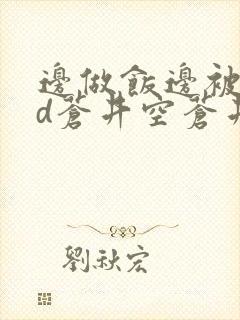 邊做飯邊被
d蒼井空蒼井
劉秋宏